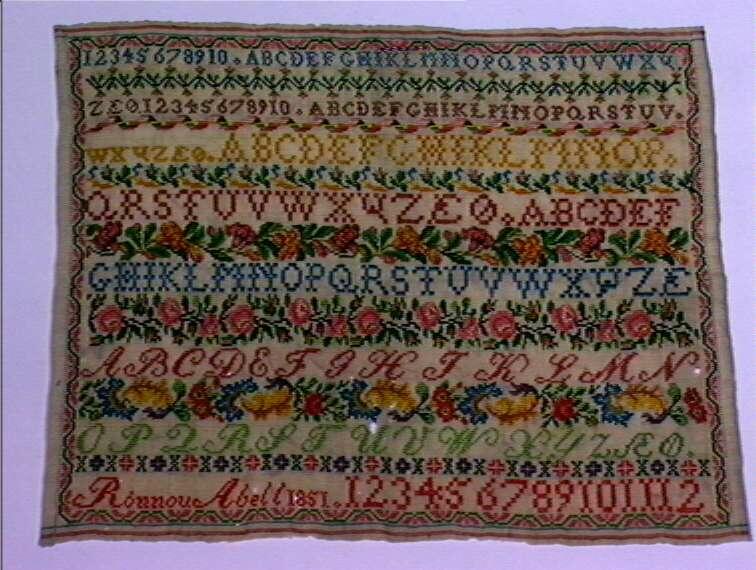 12345678910. ABCDEFGHIKLMNOPQRSTUVWXY
ZÆØ12345678910. ABCDEFGHIKLMNOPQRSTUV.
WXYZÆØ. ABCDEFGHIKLMNOP.
QRSTUVWXYZÆØ. ABCDEF
GHIKLMNOPQRSTUVWXYZÆ
ABCDEFGHIKLMN
OPQRSTUVWXYZÆØ.
Rönnou Abell 1851. 123456789101112